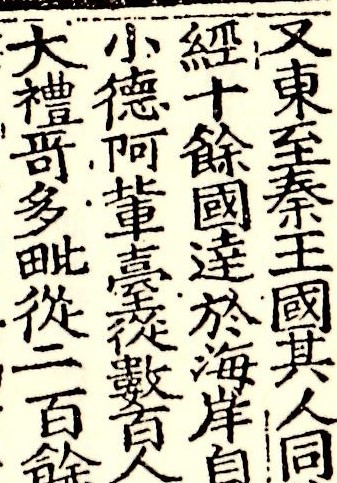 又東至秦王國其人同
經十餘國達於海岸自
小德阿輩臺從數百人
大禮哥多毗從二百餘